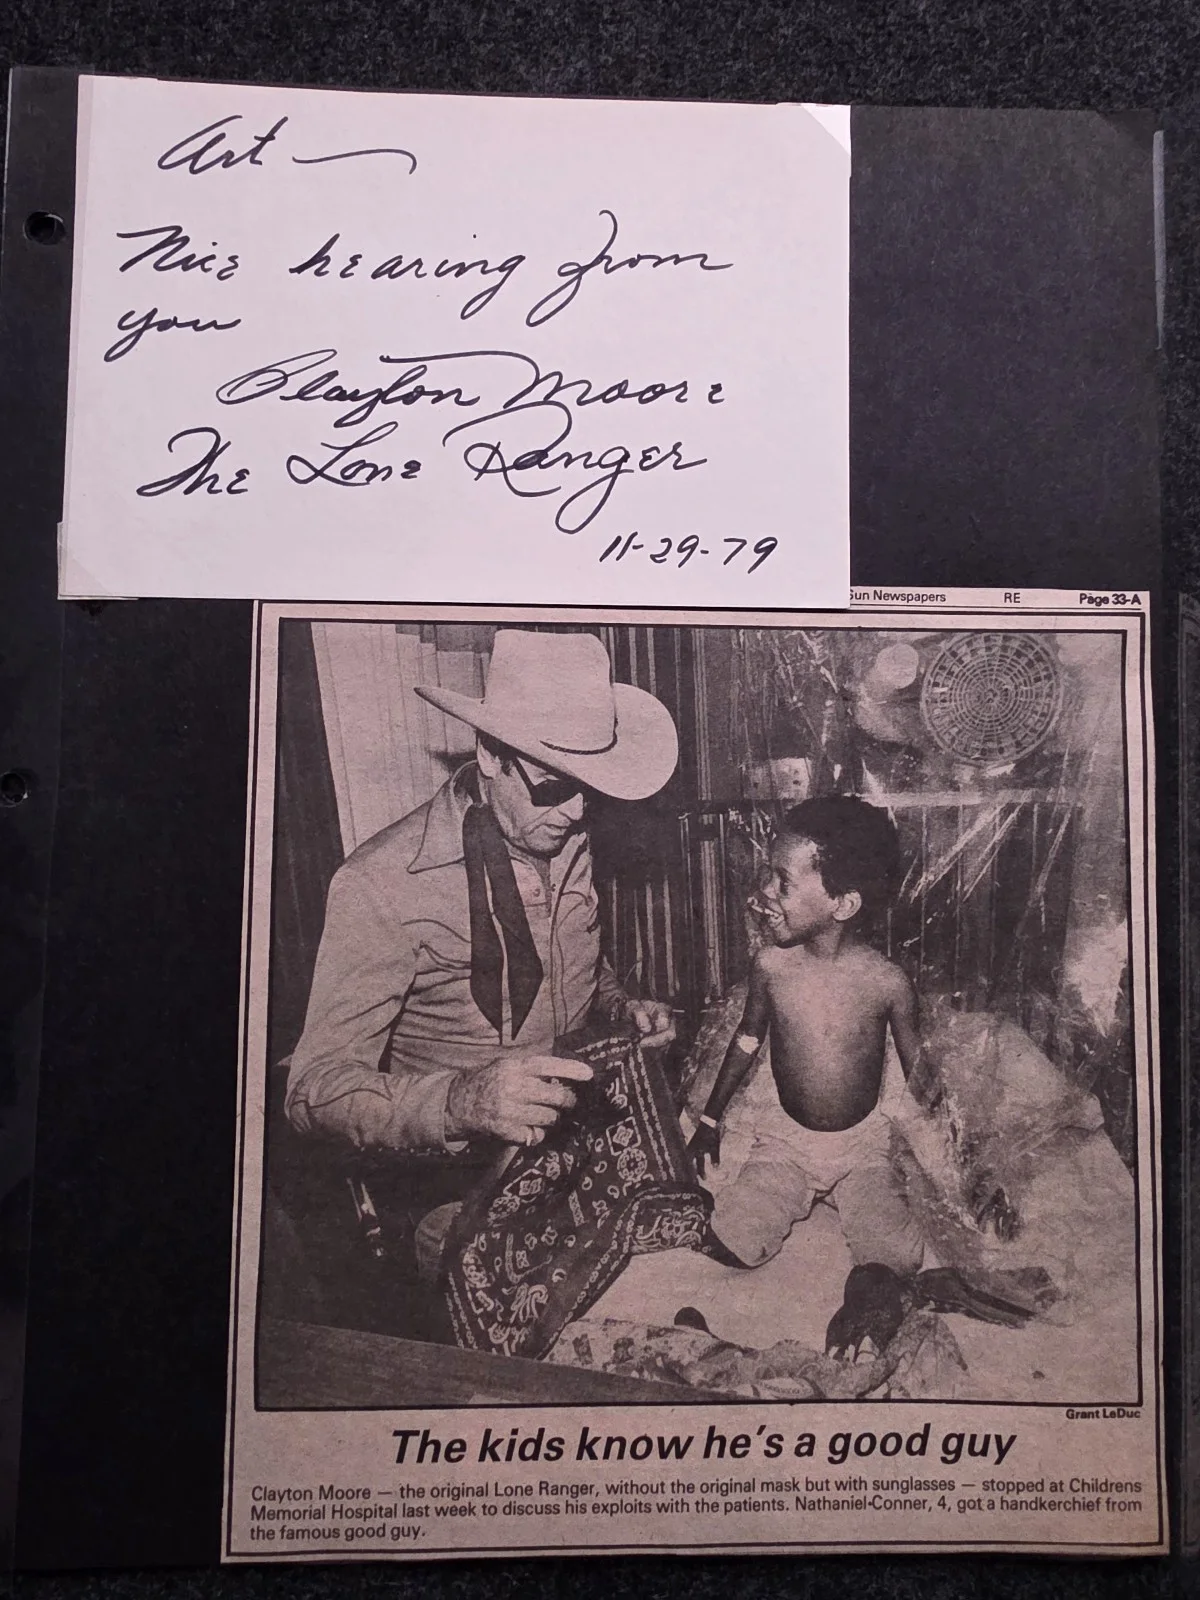 Art —
Nice hearing from
you
Clayton Moore
The Lone Ranger
11-29-79
Sun Newspapers RE Page 33-A
Grant LeDuc
The kids know he's a good guy
Clayton Moore — the original Lone Ranger, without the original mask but with sunglasses — stopped at Childrens
Memorial Hospital last week to discuss his exploits with the patients. Nathaniel Conner, 4, got a handkerchief from
the famous good guy.